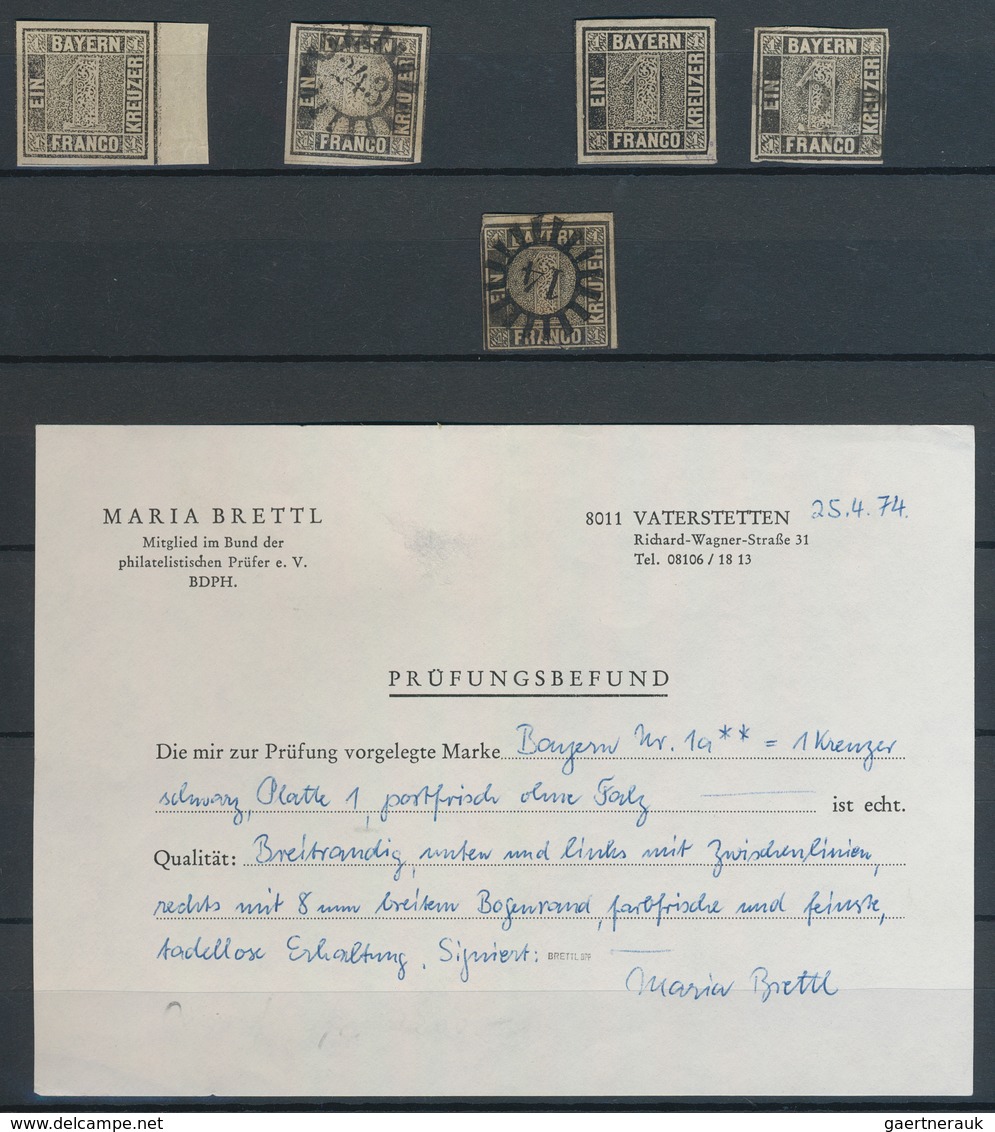 BAYERN
EIN 1 KREUZER
FRANCO
BAYERN
EIN 243 KREUZER
FRANCO
BAYERN
EIN 1 KREUZER
FRANCO
BAYERN
EIN 1 KREUZER
FRANCO
BAYERN
EIN 14 KREUZER
FRANCO
MARIA BRETTL
Mitglied im Bund der
philatelistischen Prüfer e. V.
BDPH.
8011 VATERSTETTEN 25.4.74.
Richard-Wagner-Straße 31
Tel. 08106 / 18 13
PRÜFUNGSBEFUND
Die mir zur Prüfung vorgelegte Marke Bayern Nr. 1a** = 1 Kreuzer
schwarz, Platte 1, postfrisch ohne Falz ist echt.
Qualität: Breitrandig, unten und links mit Zwischenlinien,
rechts mit 8 mm breitem Bogenrand, farbfrische und feinste,
tadellose Erhaltung. Signiert: BRETTL BPP
Maria Brettl
gaertnerauk